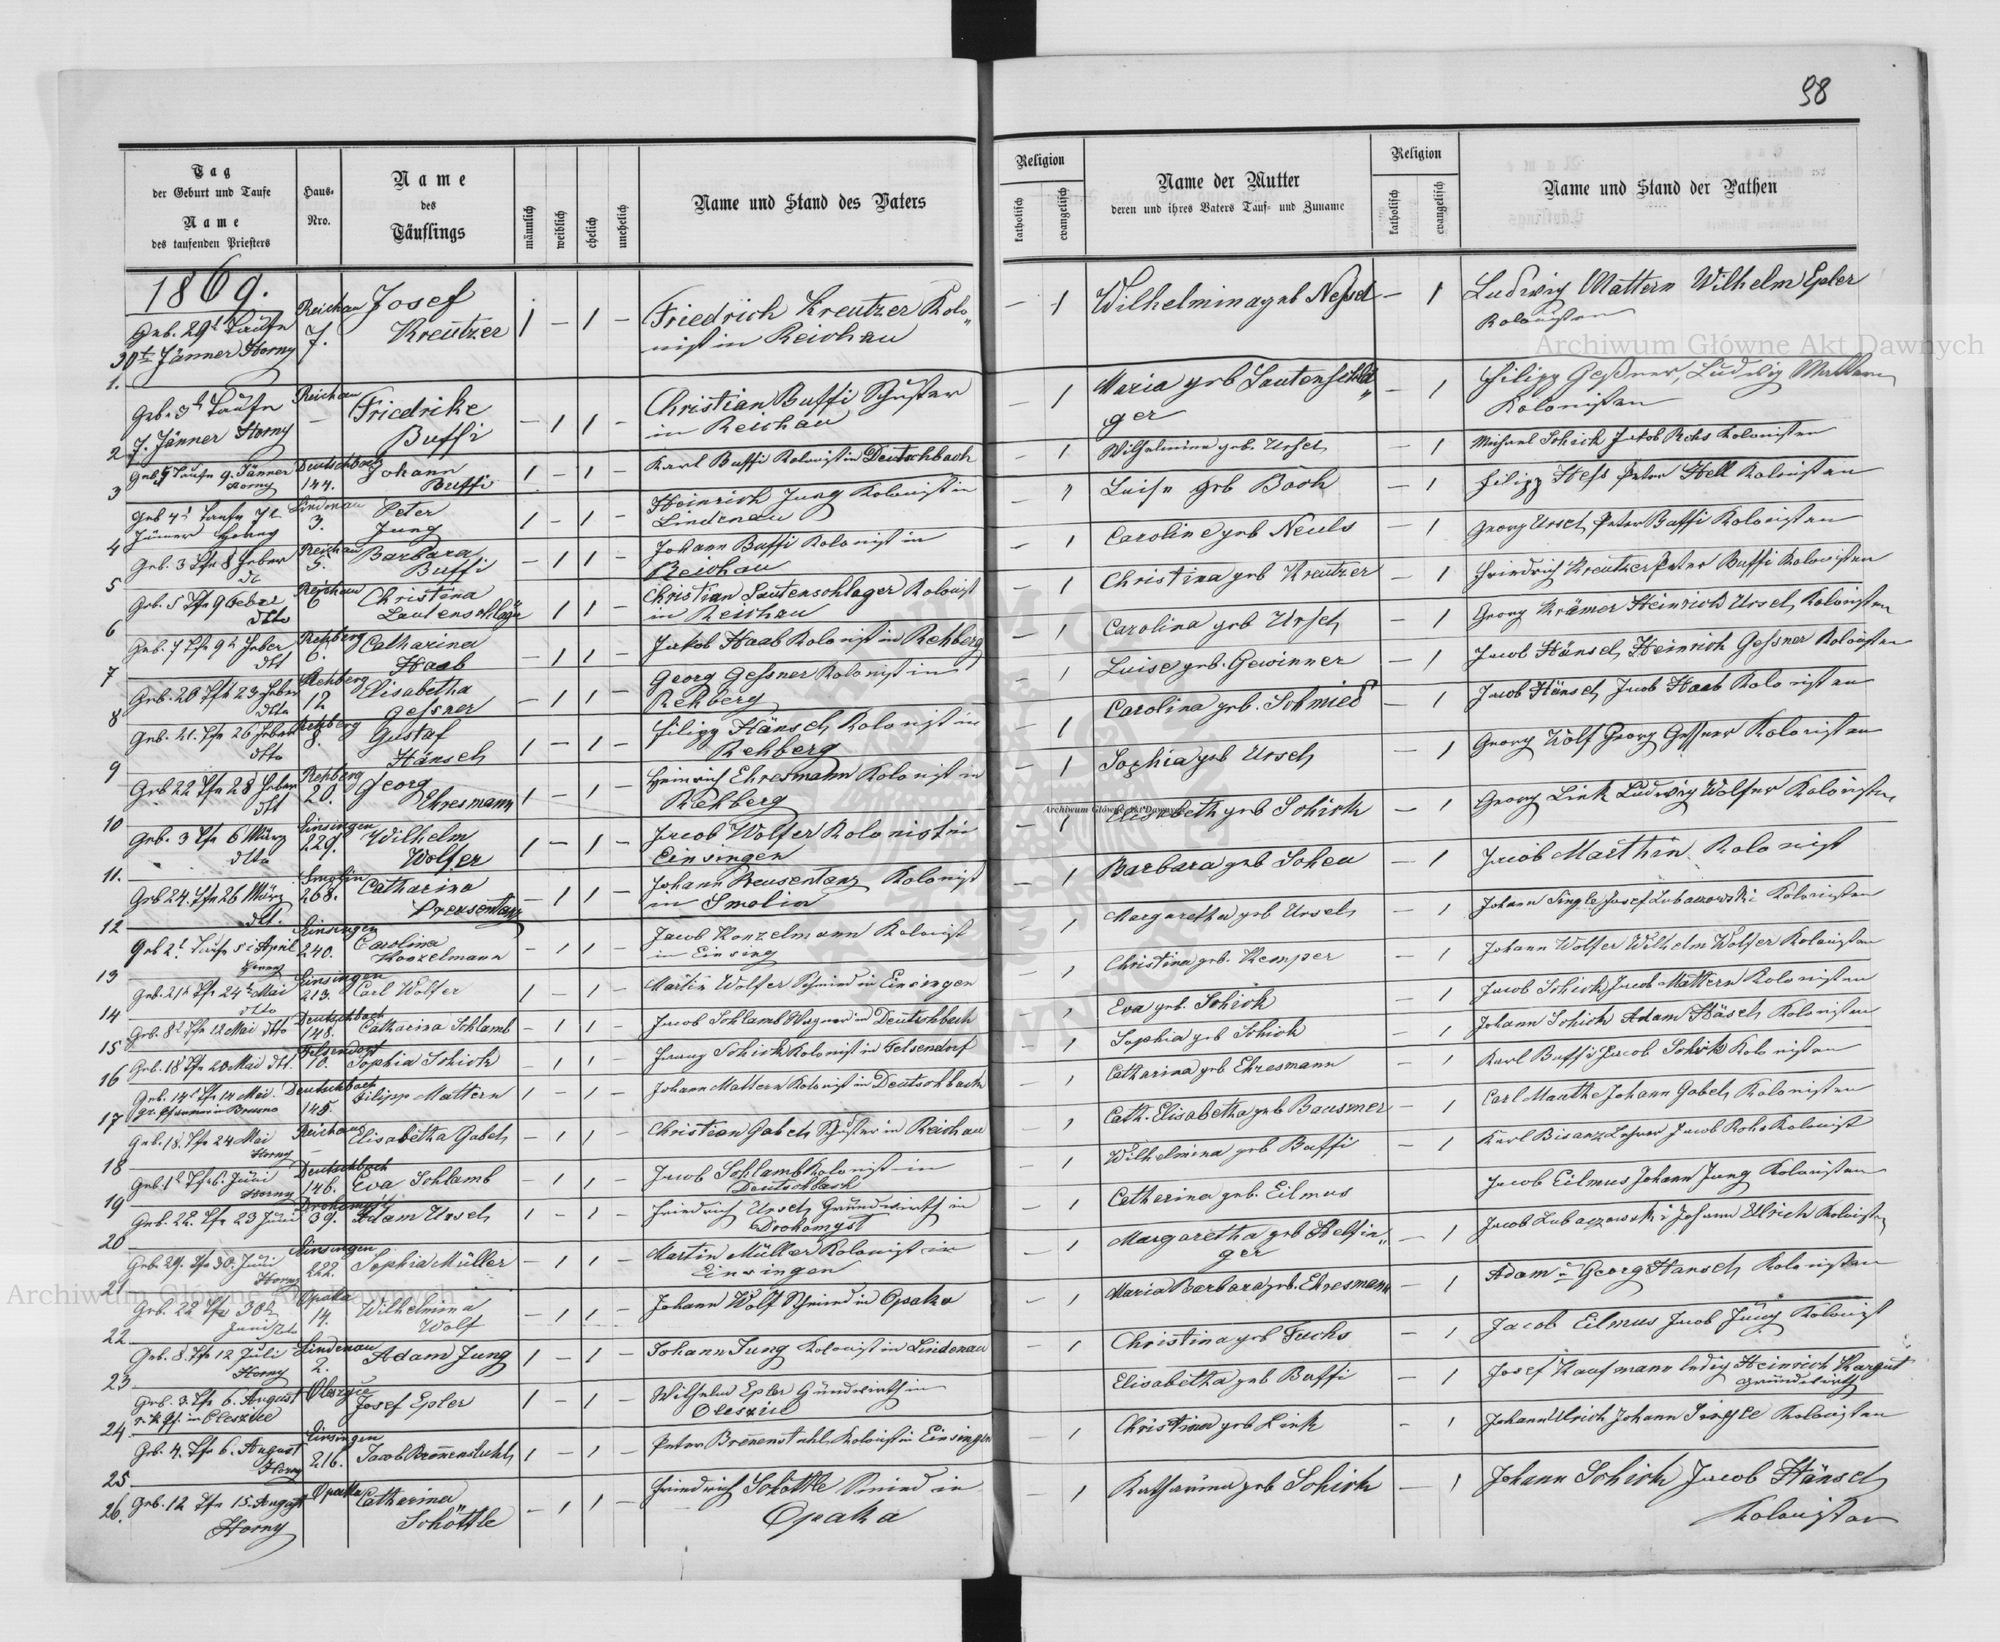 98
Tag
der Geburt und Taufe
Name
des taufenden Priesters
Haus-
Nro.
Name
des
Täuflings
männlich
weiblich
ehelich
unehelich
Name und Stand des Vaters
Religion
katholisch
evangelisch
Name der Mutter
deren und ihres Vaters Tauf- und Zuname
Religion
katholisch
evangelisch
Name und Stand der Pathen
1869.
1. Geb. 29t Taufe 30t Jänner Horny Reichau 7. Josef Kreutzer 1 – 1 – Friedrich Kreutzer Kolonist in Reichau – 1 Wilhelmina geb – 1 Ludwig Mattern Wilhelm Epler Kolonisten
2 Geb. 3t Taufe 7. Jänner Horny Reichau – Friedrike Buffi – 1 1 – Christian Buffi Schuster in Reichau – 1 Maria geb Lautenschläger – 1 Filipp Geßner, Ludwig Mattern Kolonisten
3 Taufe 9. Jänner Horny Deutschbach 144. Johann Buffi 1 – 1 – Karl Buffi Kolonist in Deutschbach – 1 Wilhelmine geb. Ursch – 1 Michael Schick Jakob Rohs Kolonisten
4 Geb 4t Taufe Jänner Horny Lindenau 3. Peter Jung 1 – 1 – Heinrich Jung Kolonist in Lindenau – 1 Luise geb Böch – 1 Filipp Heß Peter Hell Kolonisten
5 Geb. 3 Tfe 8 Feber Reichau 5. Barbara Buffi – 1 1 – Johann Buffi Kolonist in Reichau – 1 Caroline geb Neuls – 1 Georg Ursch Peter Buffi Kolonisten
6 Geb. 5 Tfe 9 Feber dtto Reichau 6 Christina Lautenschläger – 1 1 – Christian Lautenschlager Kolonist in Reichau – 1 Christina geb Kreutzer – 1 Friedrich Kreutzer Peter Buffi Kolonisten
7 Geb. 7 Tfe 9t Feber dtt Rehberg 6. Catharina Haab – 1 1 – Jakob Haab Kolonist in Rehberg – 1 Carolina geb Ursch – 1 Georg Krämer Heinrich Ursch Kolonisten
8 Geb. 20 Tfe 23 Feber dtto Rehberg 12 Elisabetha Geßner – 1 1 – Georg Geßner Kolonist in Rehberg – 1 Luise geb. Gewinner – 1 Jacob Hänsch Heinrich Geßner Kolonisten
9 Geb. 21. Tfe 26 Feber dtto Rehberg 8. Gustaf Hänsch 1 – 1 – Filipp Hänsch Kolonist in Rehberg – 1 Carolina geb. Schmied – 1 Jacob Hänsch Jacob Haab Kolonisten
10 Geb 22 Tfe 28 Feber dtt Rehberg 20. Georg Ehresmann 1 – 1 – Heinrich Ehresmann Kolonist in Rehberg – 1 Sophia geb Ursch – 1 Georg Wolf Georg Geßner Kolonisten
11. Geb. 3 Tfe 6 März dtto Einsingen 229. Wilhelm Wolfer 1 – 1 – Jacob Wolfer Kolonist in Einsingen – 1 Elisabeth geb Schick – 1 Georg Link Ludwig Wolfer Kolonisten
12 Geb 24. Tfe 26 März dtt. Smolin 268. Catharina Preusentanz – 1 1 – Johann Preusentanz Kolonist in Smolin – 1 Barbara geb – 1 Jacob Marthin Kolonist
13 Geb 2t Taufe 5t April Horny Einsingen 240. Carolina Konzelmann – 1 1 – Jacob Konzelmann Kolonist in Einsing – 1 Margaretha geb Ursch – 1 Johann Single Josef Lubaczowski Kolonisten
14 Geb. 21t Tfe 24t Mai dtto Einsingen 213. Carl Wolfer 1 – 1 – Martin Wolfer Schmied in Einsingen – 1 Christina geb. Kemper – 1 Johann Wolfer Wilhelm Wolfer Kolonisten
15 Geb. 8t Tfe 12 Mai dtto Deutschbach 148. Catharina Schlamb – 1 1 – Jacob Schlamb Wagner in Deutschbach – 1 Eva geb. Schick – 1 Jacob Schick Jacob Mattern Kolonisten
16 Geb. 18 Tfe 20 Mai dtt. Felsendorf 10. Sophia Schick – 1 1 – Franz Schick Kolonist in Felsendorf – 1 Sophia geb Schick – 1 Johann Schick Adam Häsch Kolonisten
17 Geb. 14t Tfe 14 Mai. Deutschbach 145. Filipp Mattern 1 – 1 – Johann Mattern Kolonist in Deutschbach – 1 Catharina geb Ehresmann – 1 Karl Buffi Jacob Schick Kolonisten
18 Geb. 18. Tfe 24 Mai Horny Reichau – Elisabetha Gabel – 1 1 – Christian Gabel Schuster in Reichau – 1 Cath. Elisabetha geb Bausmer – 1 Carl Manthe Johann Gabel Kolonisten
19 Geb. 1t Tfe 6. Juni Horny Deutschbach 146. Eva Schlamb – 1 1 – Jacob Schlamb Kolonist in Deutschbach – 1 Wilhelmina geb Buffi – 1 Karl Bisanz Lehrer Jacob Rohs Kolonist
20 Geb. 22. Tfe 23 Juni Drohomyśl 39. Adam Ursch 1 – 1 – Friedrich Ursch Grundwirth in Drohomyst – 1 Catherina geb. Eilmus Jacob Eilmus Johann Jung Kolonisten
21 Geb. 29. Tfe 30. Juni Horny Einsingen 222. Sophia Müller – 1 1 – Martin Müller Kolonist in Einsingen – 1 Margaretha geb – 1 Jacob Lubaczowski Johann Ulrich Kolonisten
22 Geb. 22 Tfe 30t Juni dto Opaka 14. Wilhelmina Wolf – 1 1 – Johann Wolf Schmied in Opaka – 1 Maria Barbara geb. Ehresmann – 1 Adam u Georg Hansch Kolonisten
23 Geb. 8. Tfe 12 Juli Horny Lindenau 2. Adam Jung 1 – 1 – Johann Jung Kolonist in Lindenau – 1 Christina geb Fuchs – 1 Jacob Eilmus Jacob Jung Kolonist
24 Geb. 3. Tfe 6. August in Oleszice Oleszyce Josef Epler 1 – 1 – Wilhelm Epler Gundwirth in Oleszice Elisabetha geb Buffi – 1 Josef Kaufmann ledig Heinrich Kargut Grundwirth
25 Geb. 4. Tfe 6. August Horny Einsingen 216. Jacob Brennenstuhl 1 – 1 – Peter Brennenstuhl Kolonist in Einsingen – 1 Christina geb Link – 1 Johann Ulrich Johann Single Kolonisten
26. Geb. 12 Tfe 15. August Horny Opaka Catharina Schöttle – 1 1 – Friedrich Schöttle Smied in Opaka – 1 Katharina geb Schick – 1 Johann Schick Jacob Hänsch Kolonisten
Archiwum Główne Akt Dawnych
Archiwum Główne Akt Dawnych
Archiwum Główne Akt Dawnych